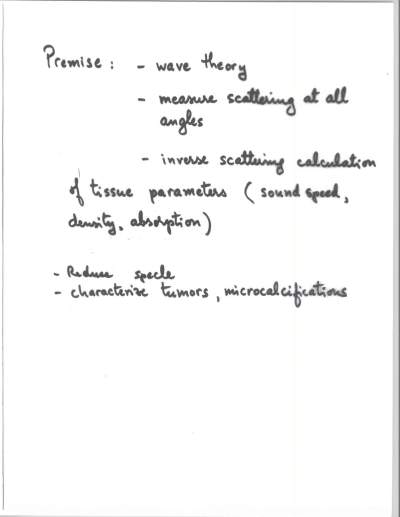 Premise : - wave theory
- measure scattering at all
angles
- inverse scattering calculation
of tissue parameters ( sound speed,
density, absorption)
- Reduce specle
- characterize tumors, microcalcifications